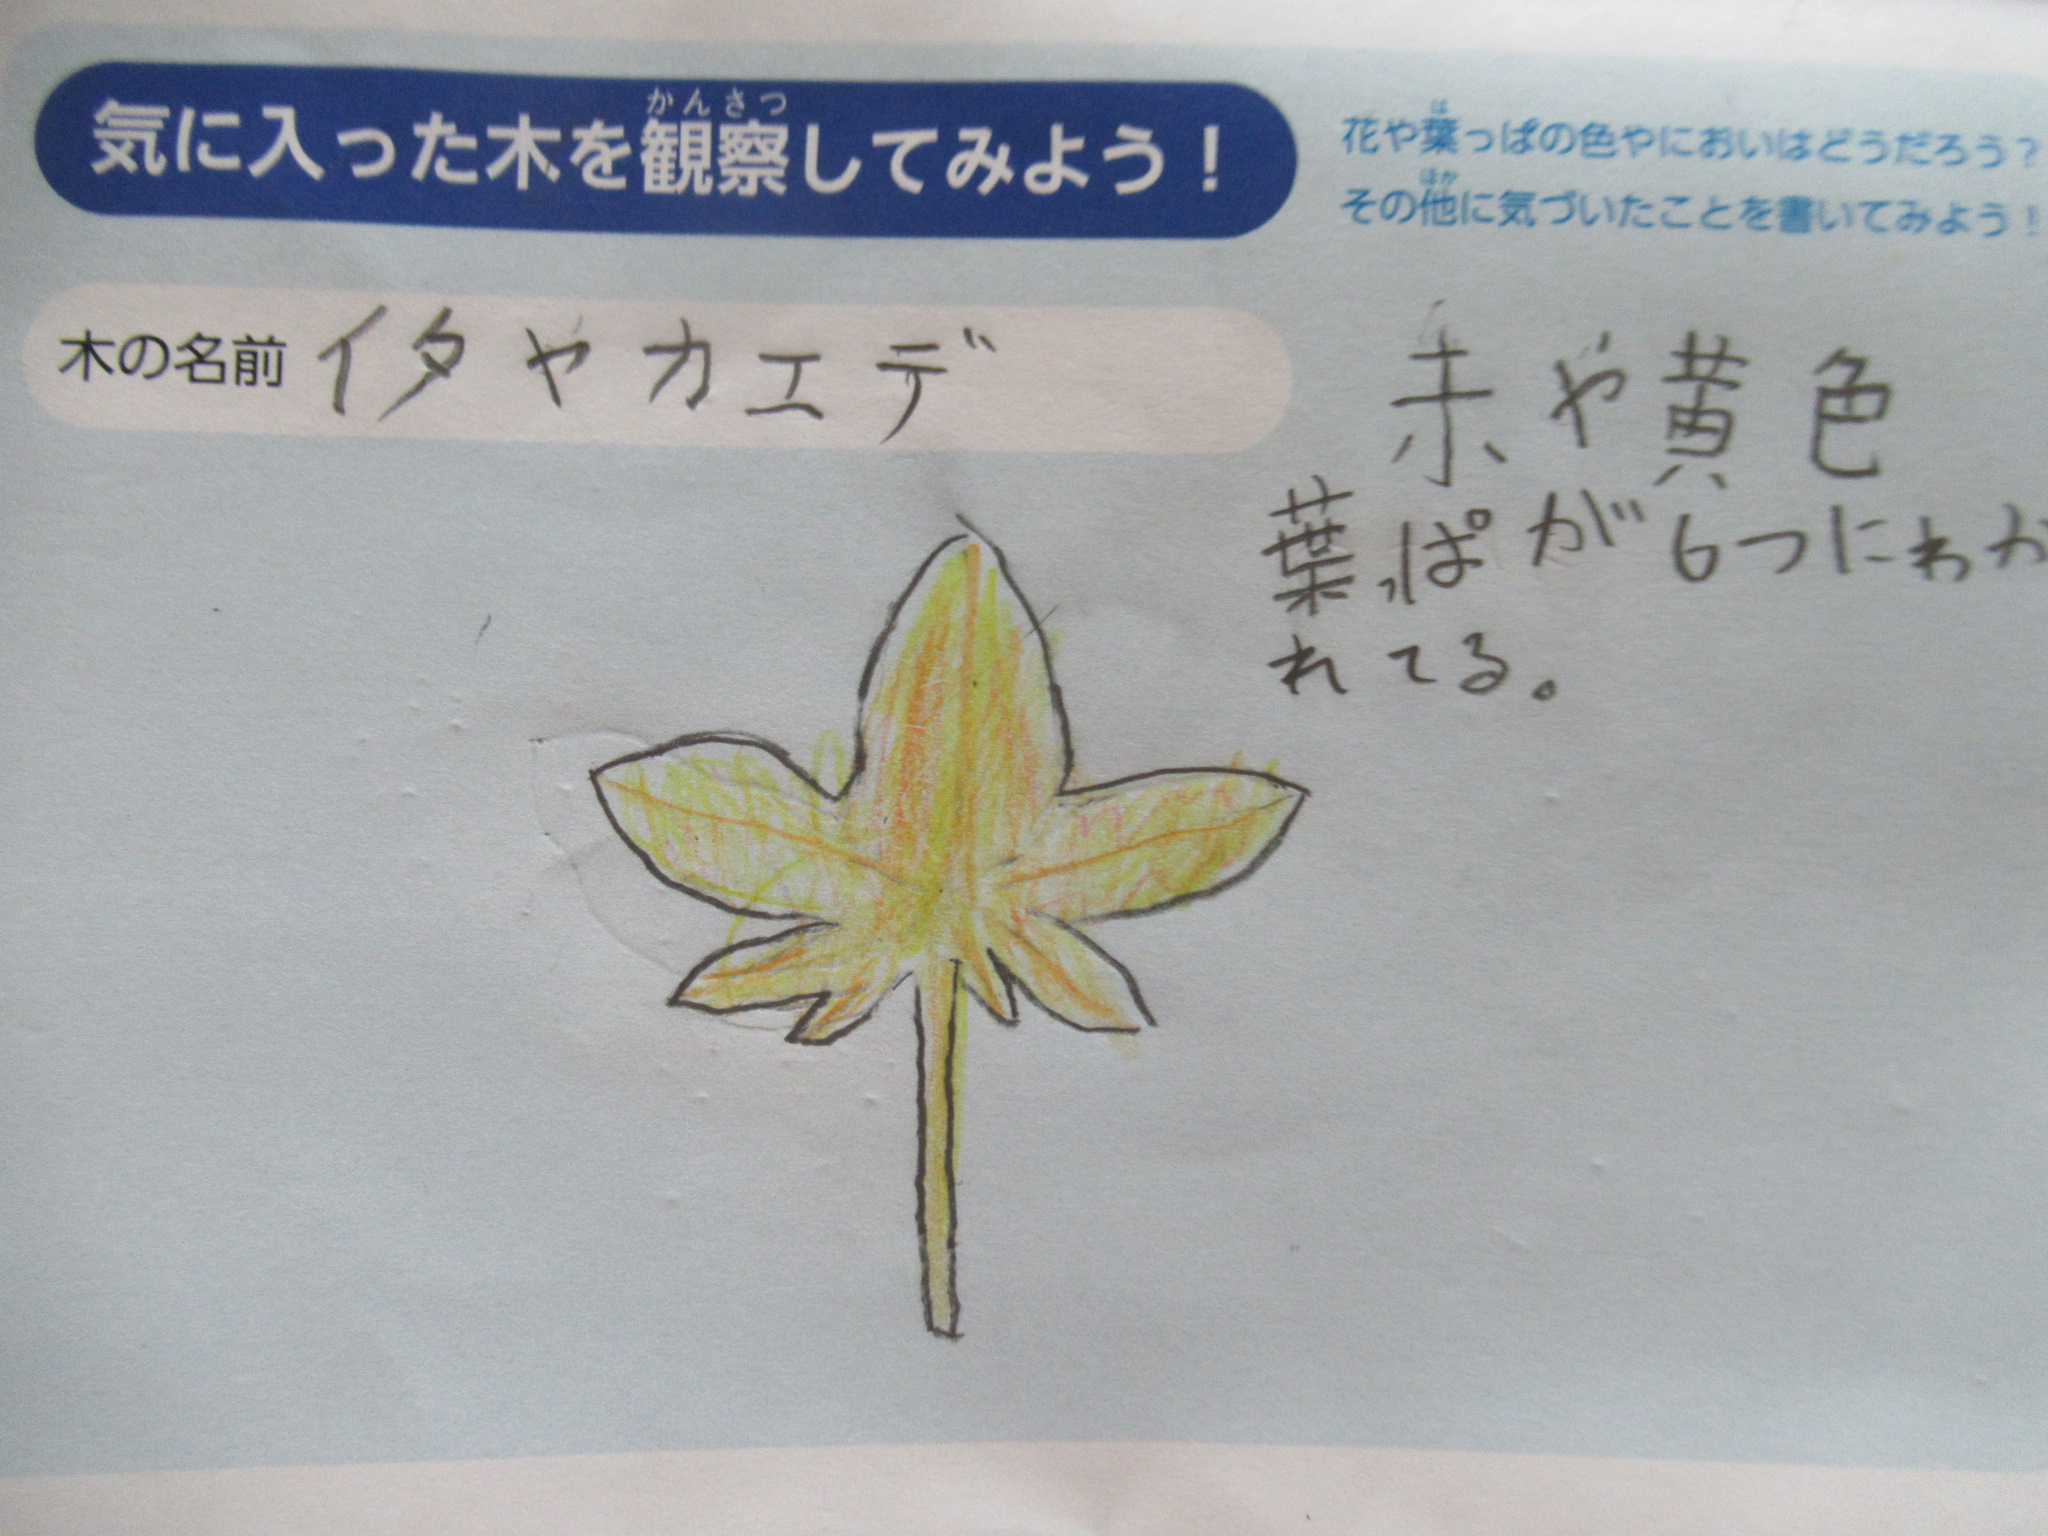 気に入った木を観察してみよう！
かんさつ
花や葉っぱの色やにおいはどうだろう？
は
その他に気づいたことを書いてみよう！
ほか
木の名前 イタヤカエデ
赤や黄色
葉っぱが6つにわか
れてる。